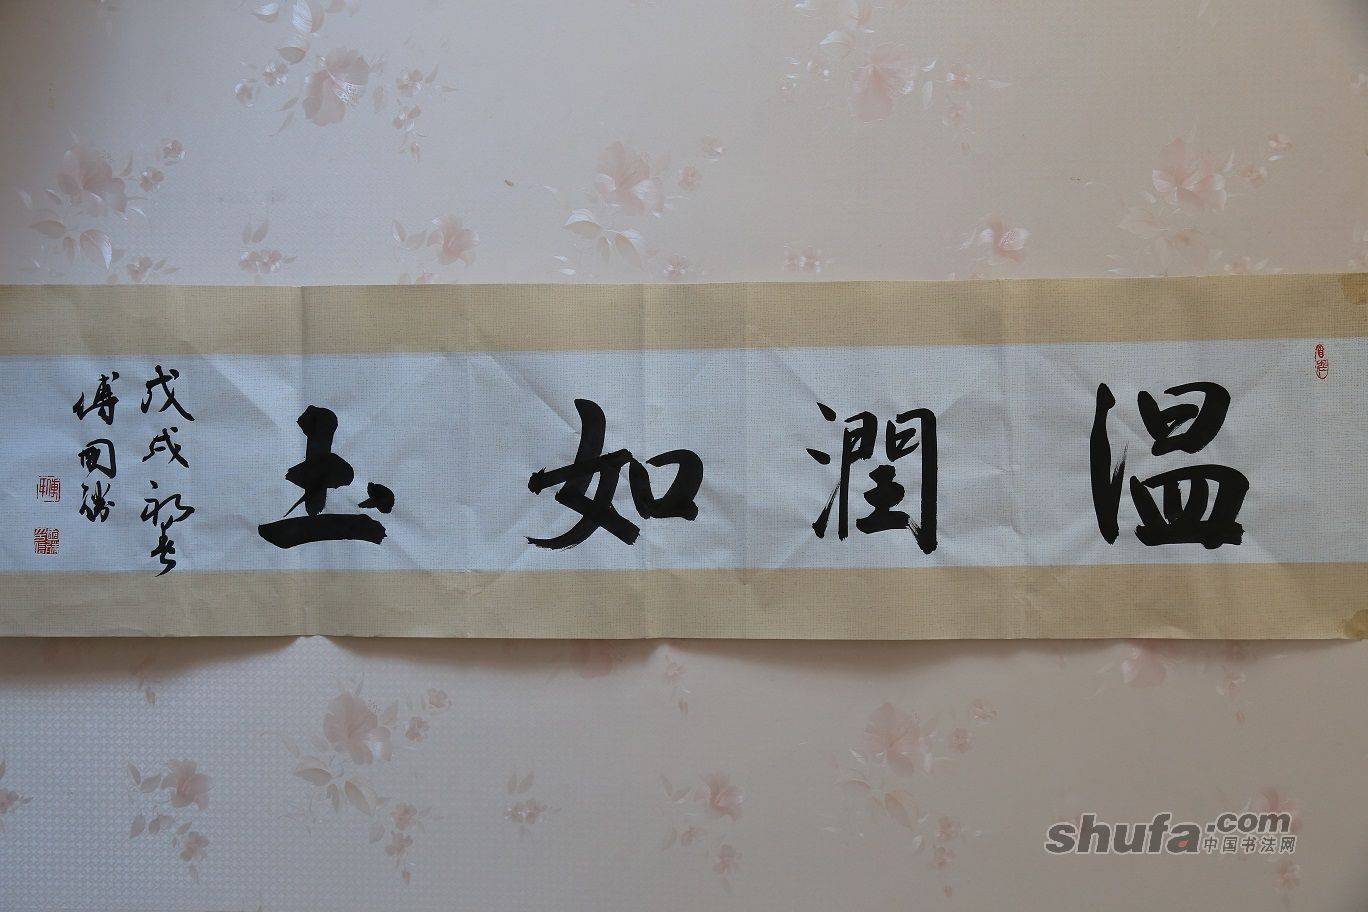 溫潤如玉
戊戌初春
傅國勝
shufa.com
中国书法网